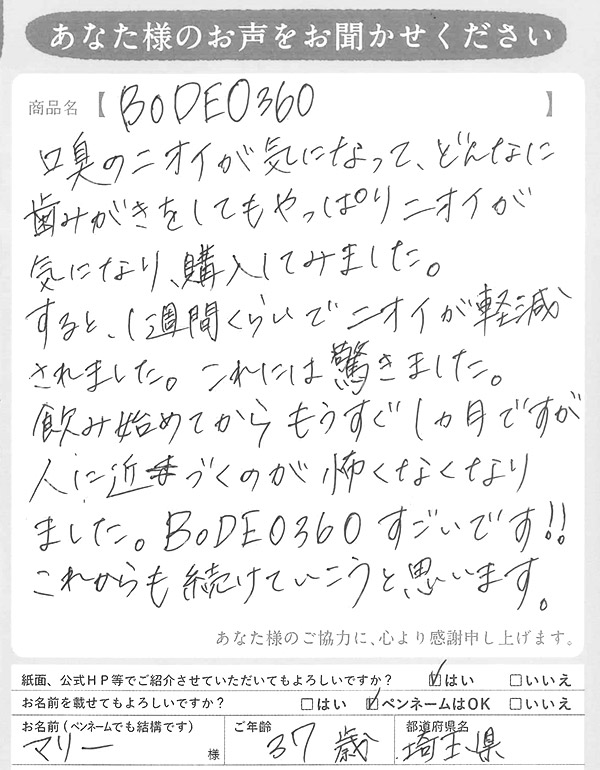 あなた様のお声をお聞かせください
商品名【 BoDEO360 】
口臭のニオイが気になって、どんなに
歯みがきをしてもやっぱりニオイが
気になり、購入してみました。
すると、1週間くらいでニオイが軽減
されました。これには驚きました。
飲み始めてからもうすぐ1ヵ月ですが
人に近づくのが怖くなくなり
ました。BoDEO360すごいです!!
これからも続けていこうと思います。
あなた様のご協力に、心より感謝申し上げます。
紙面、公式HP等でご紹介させていただいてもよろしいですか? ☑はい □いいえ
お名前を載せてもよろしいですか? □はい ☑ペンネームはOK □いいえ
お名前(ペンネームでも結構です) ご年齢 都道府県名
マリー 様 37歳 埼玉県